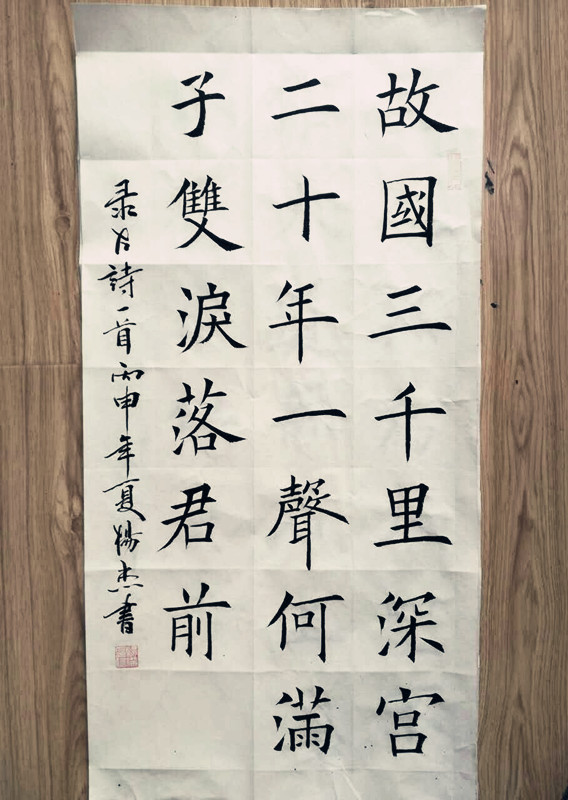 故國三千里深宫
二十年一聲何滿
子雙淚落君前
录古詩一首丙申年夏楊杰書